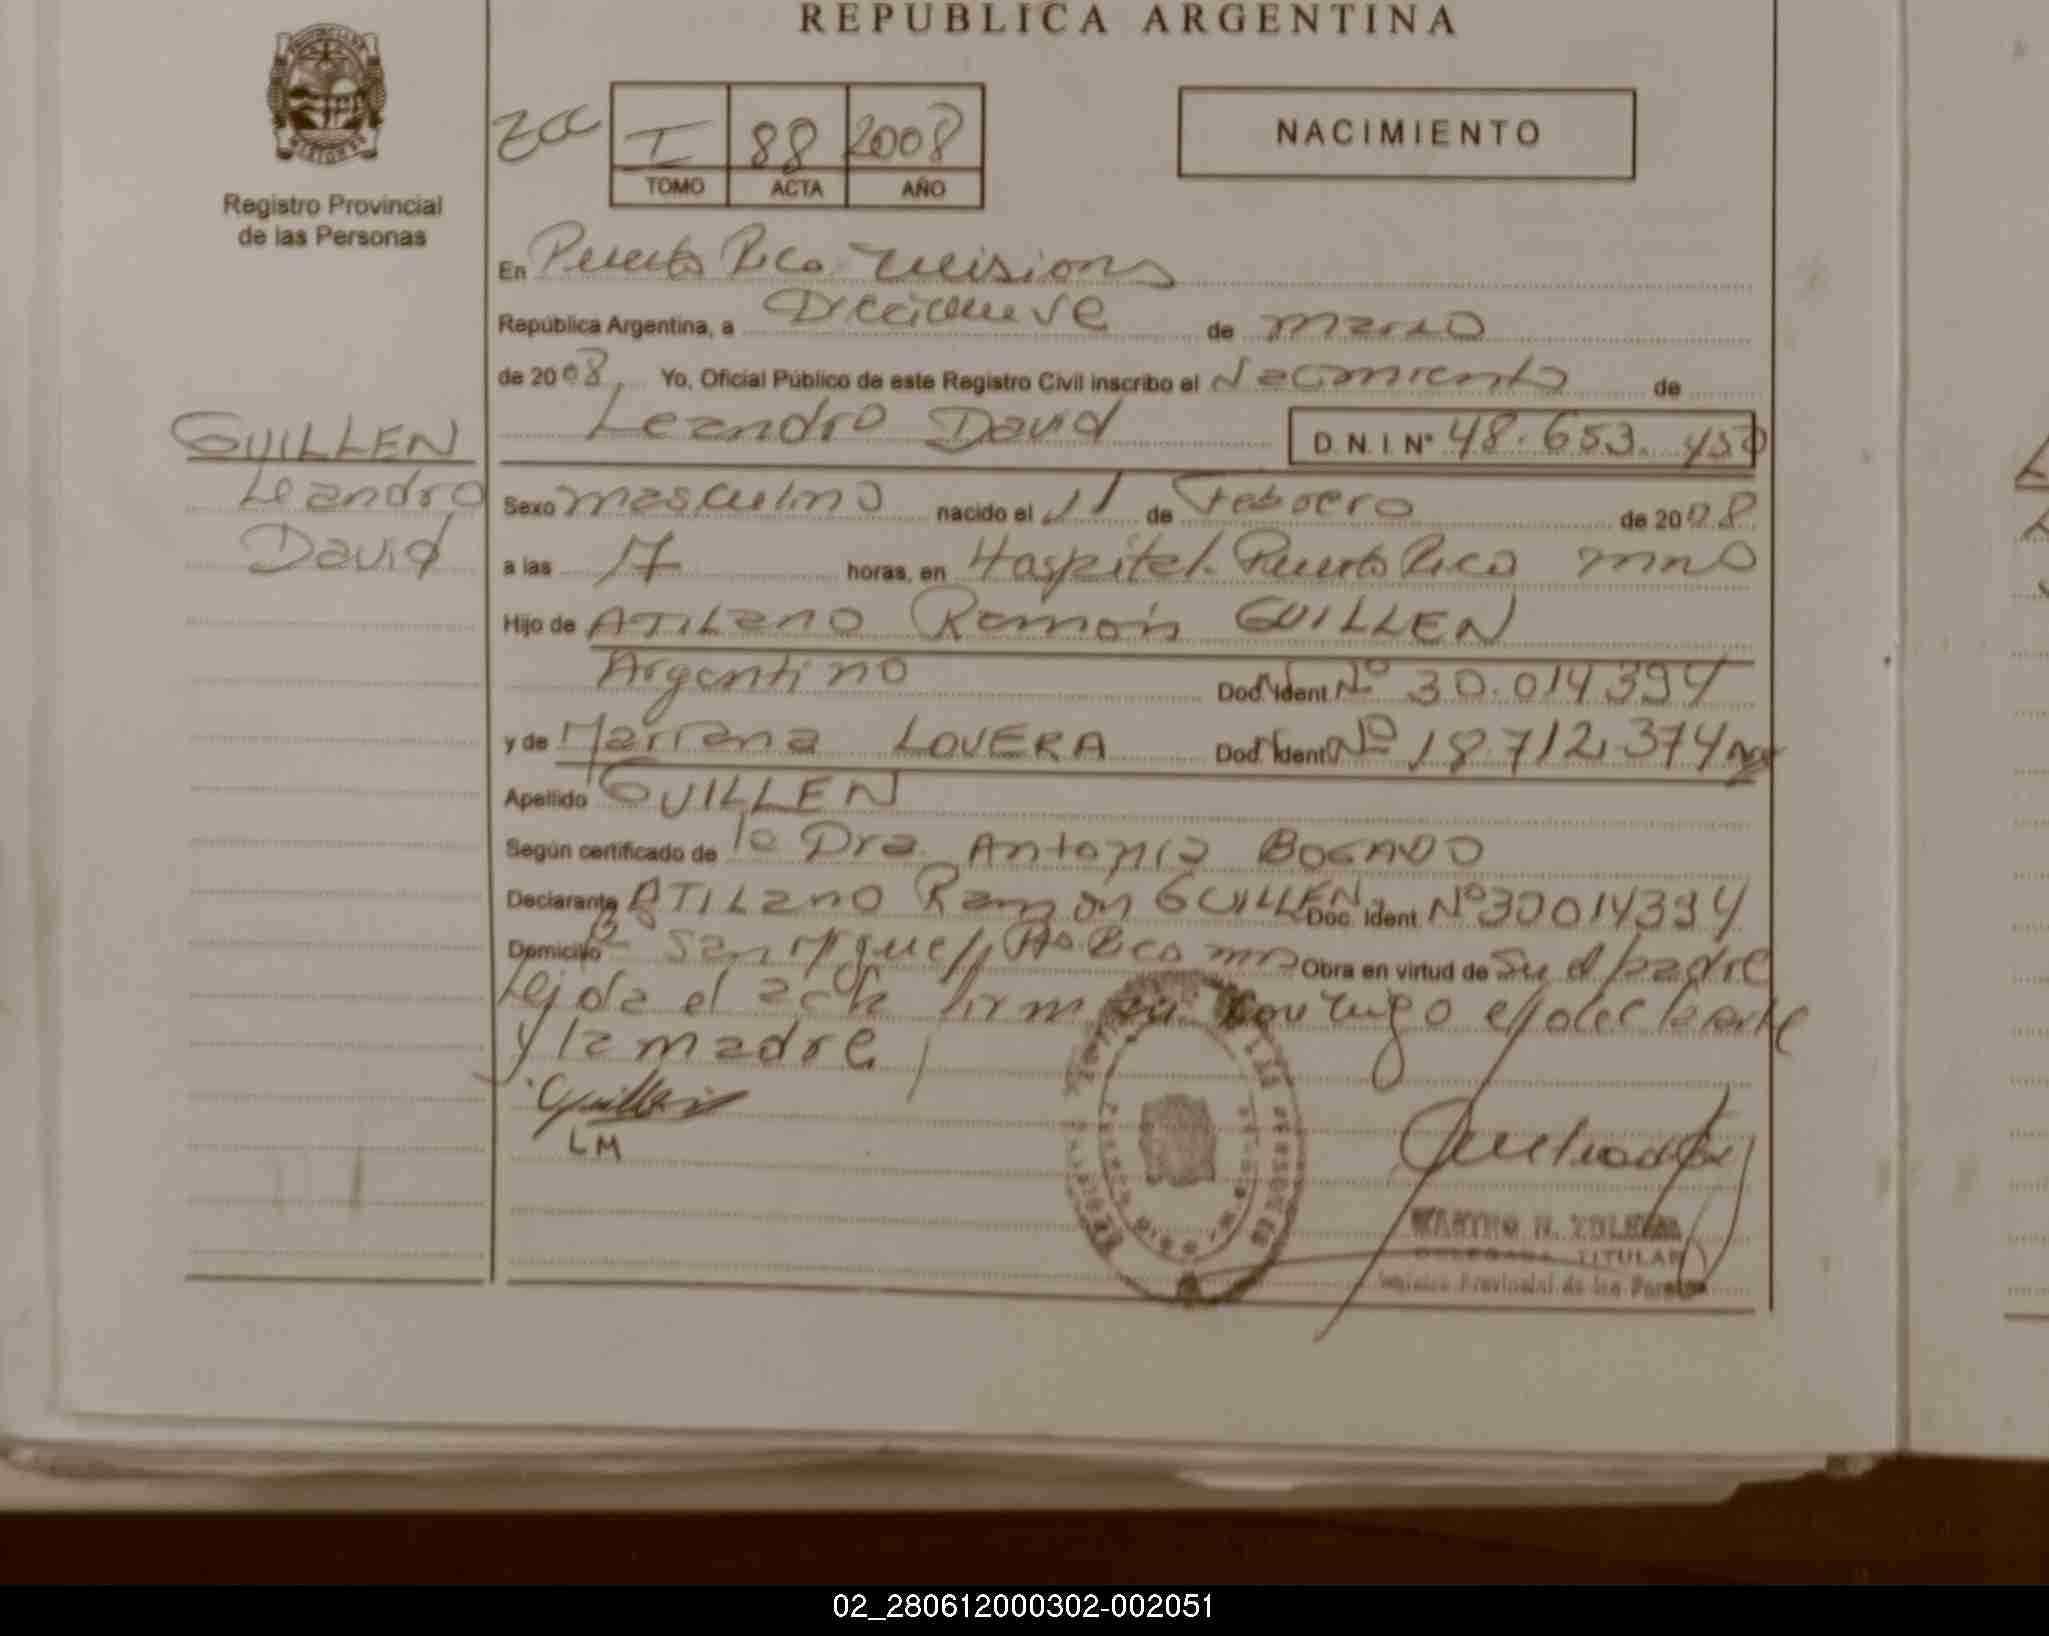 REPUBLICA ARGENTINA
I 88 2008
TOMO ACTA AÑO
NACIMIENTO
Registro Provincial
de las Personas
En Puerto Rico Misiones
República Argentina, a Diecinueve de marzo
de 2008, Yo, Oficial Público de este Registro Civil inscribo el Nacimiento de
Leandro David D.N.I. Nº 48.653.
GUILLEN
Leandro
David
Sexo masculino nacido el 11 de Febrero de 2008
a las 17 horas, en Hospital Puerto Rico mns
Hijo de ATILano Ramón GUILLEN
Argentino Doc. Ident Nº 30.014394
y de Mariana LOVERA Doc. Ident Nº 18.712.374
Apellido GUILLEN
Según certificado de la Dra. Antonia BOGADO
Declarante ATILano Ramón GUILLEN Doc. Ident. Nº 30014394
Domicilio San Miguel, Pto Rico mns Obra en virtud de Su d/padre
Leida el acta firman conmigo el declarante
y la madre
Guillen
LM
DELEGADA TITULAR
Registro Provincial de las Personas
02_280612000302-002051